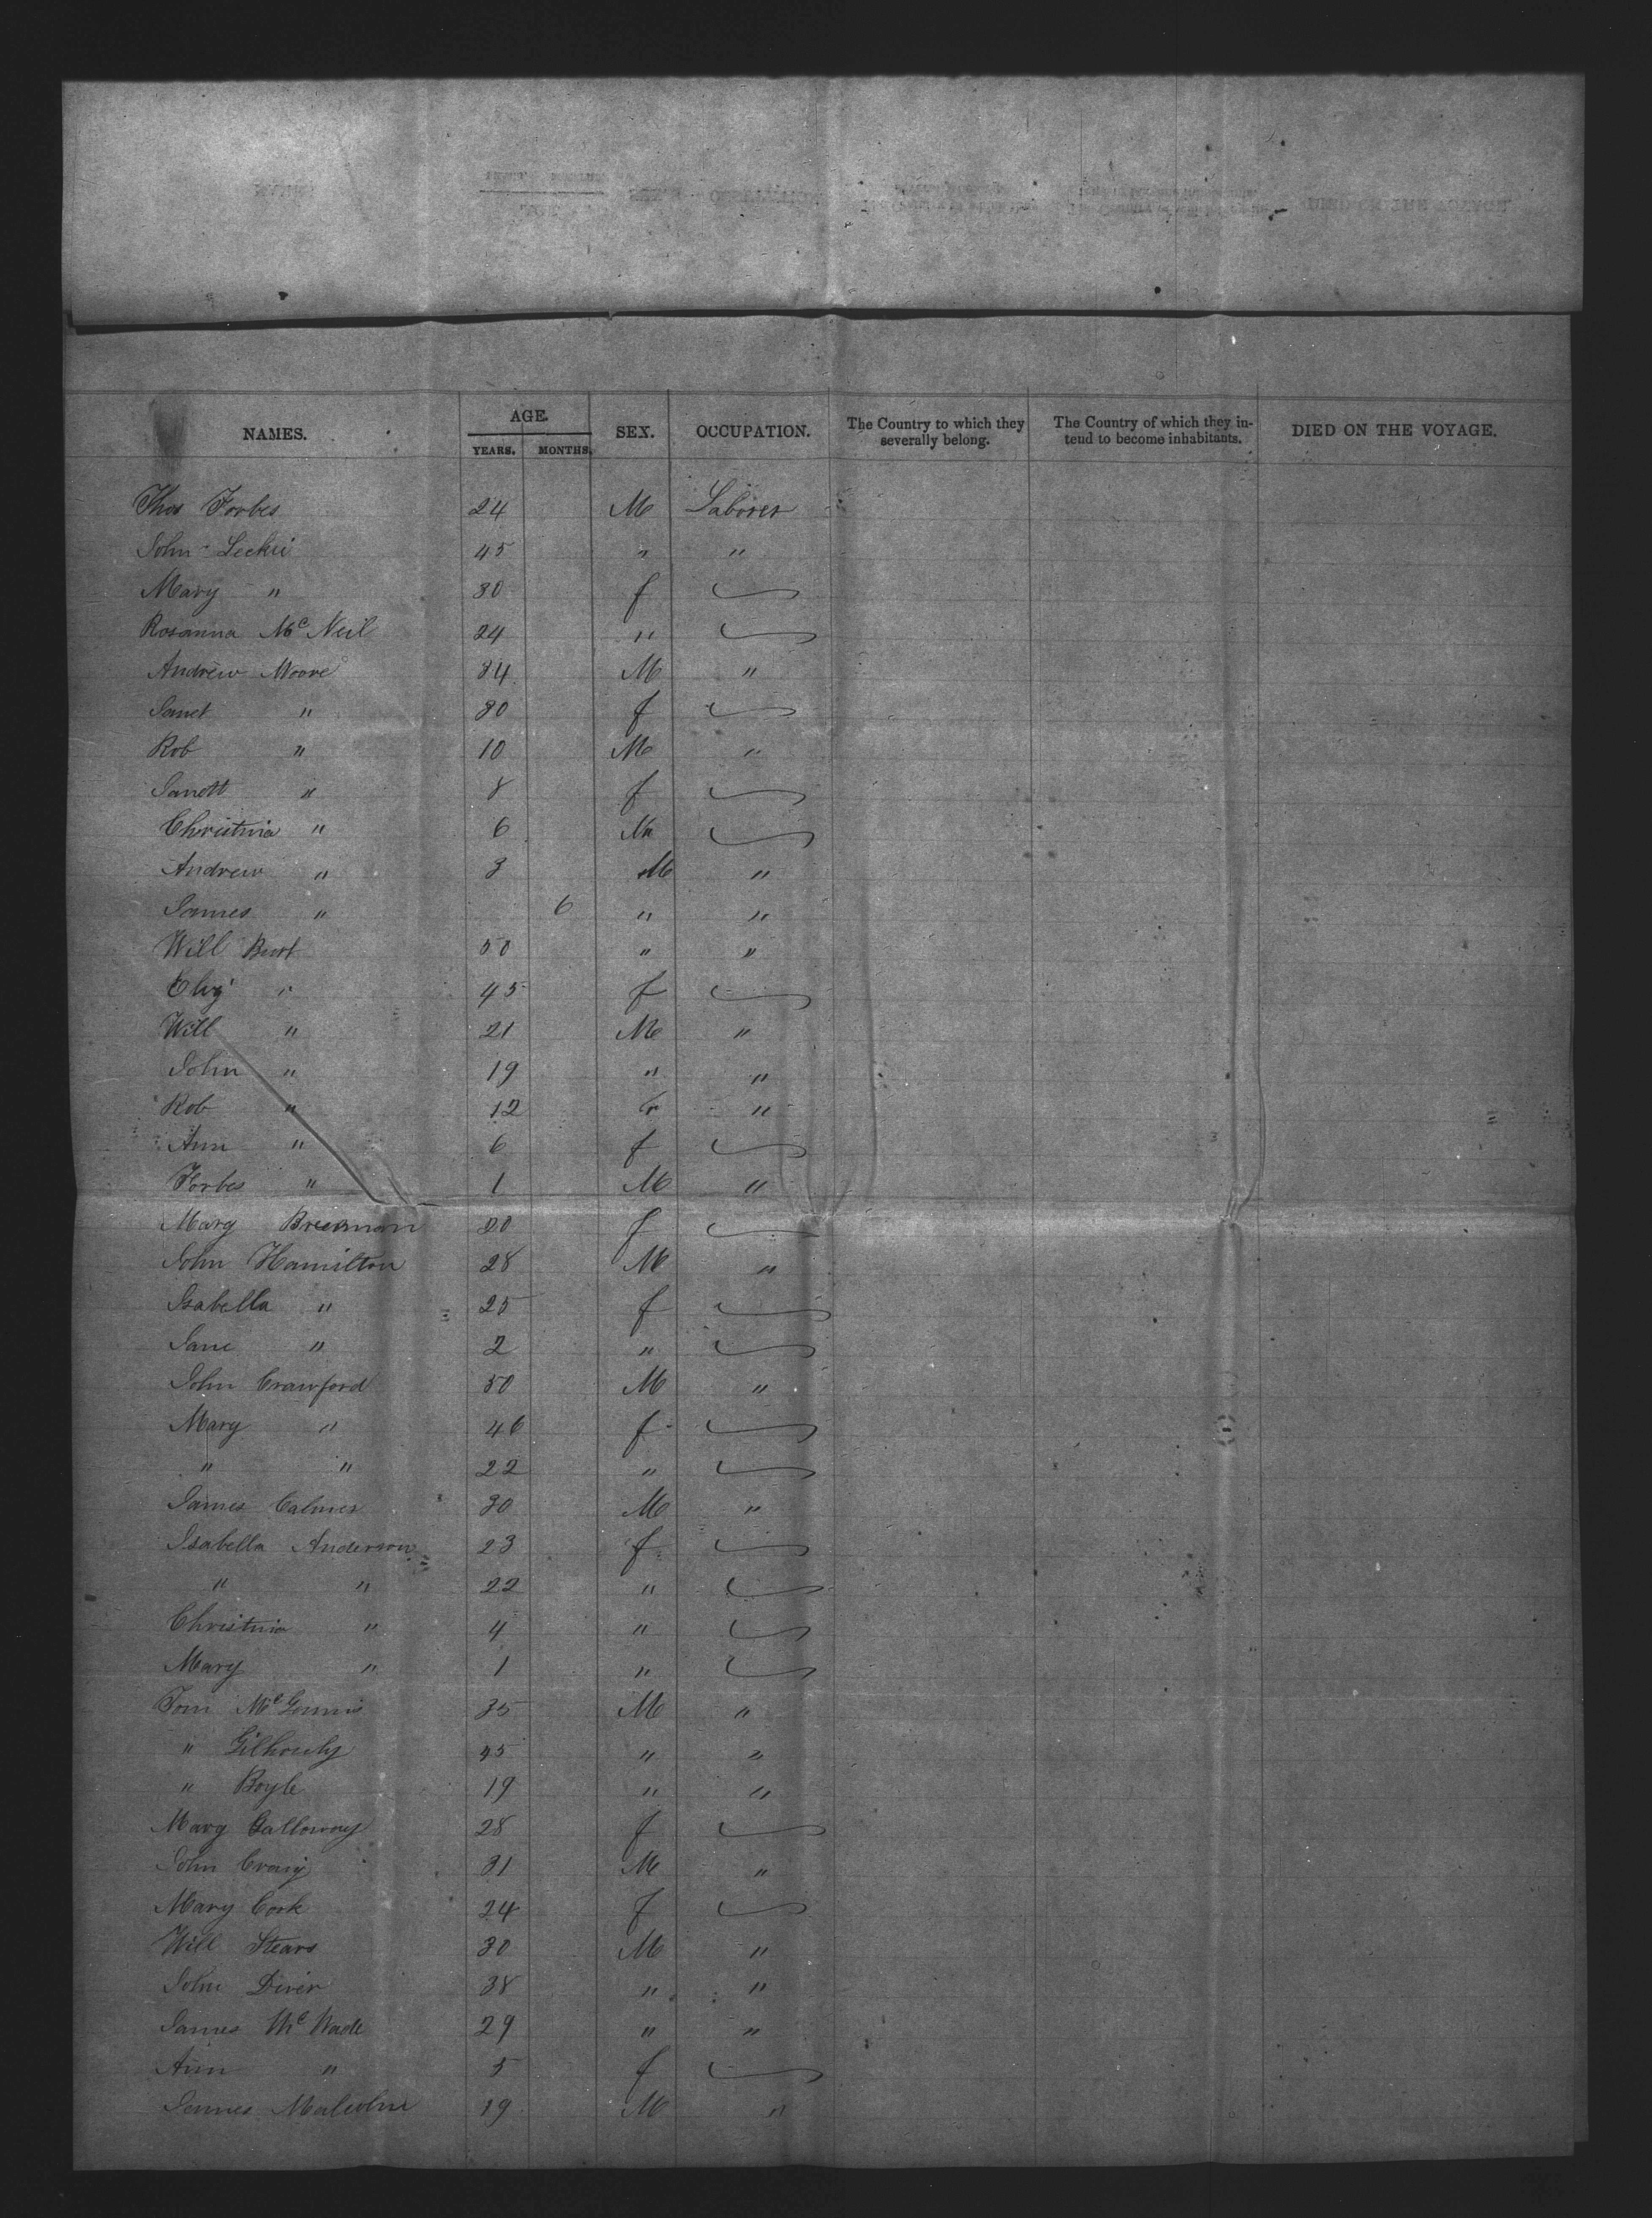 NAMES. AGE. YEARS. MONTHS. SEX. OCCUPATION. The Country to which they severally belong. The Country of which they intend to become inhabitants. DIED ON THE VOYAGE.
Thos Forbes 24 M Laborer
John Leckie 45 " "
Mary " 30 f
Rosanna Mc Neil 24 "
Andrew Moore 34 M "
Janet " 30 f
Rob " 10 M "
Janett " 8 f
Christina " 6 M
Andrew " 3 M "
James " 6 " "
Will Burt 50 " "
Eliz " 45 f
Will " 21 M "
John " 19 " "
Rob " 12 "
Ann " 6 f
Forbes " 1 M "
Mary 20 f
John Hamilton 28 M "
Isabella " 25 f
Jane " 2 "
John Crawford 50 M "
Mary " 46 f
" " 22 "
James Calmer 30 M "
Isabella Anderson 23 f
" " 22 "
Christina " 4 "
Mary " 1 "
Tom Mc Ginnis 35 M "
" Gilhouly 45 " "
" Boyle 19 " "
Mary Galloway 28 f
John Craig 31 M "
Mary Cork 24 f
Will Stears 30 M "
John Diver 38 " "
James Mc Wade 29 " "
Ann " 5 f
James Malcolm 19 M "